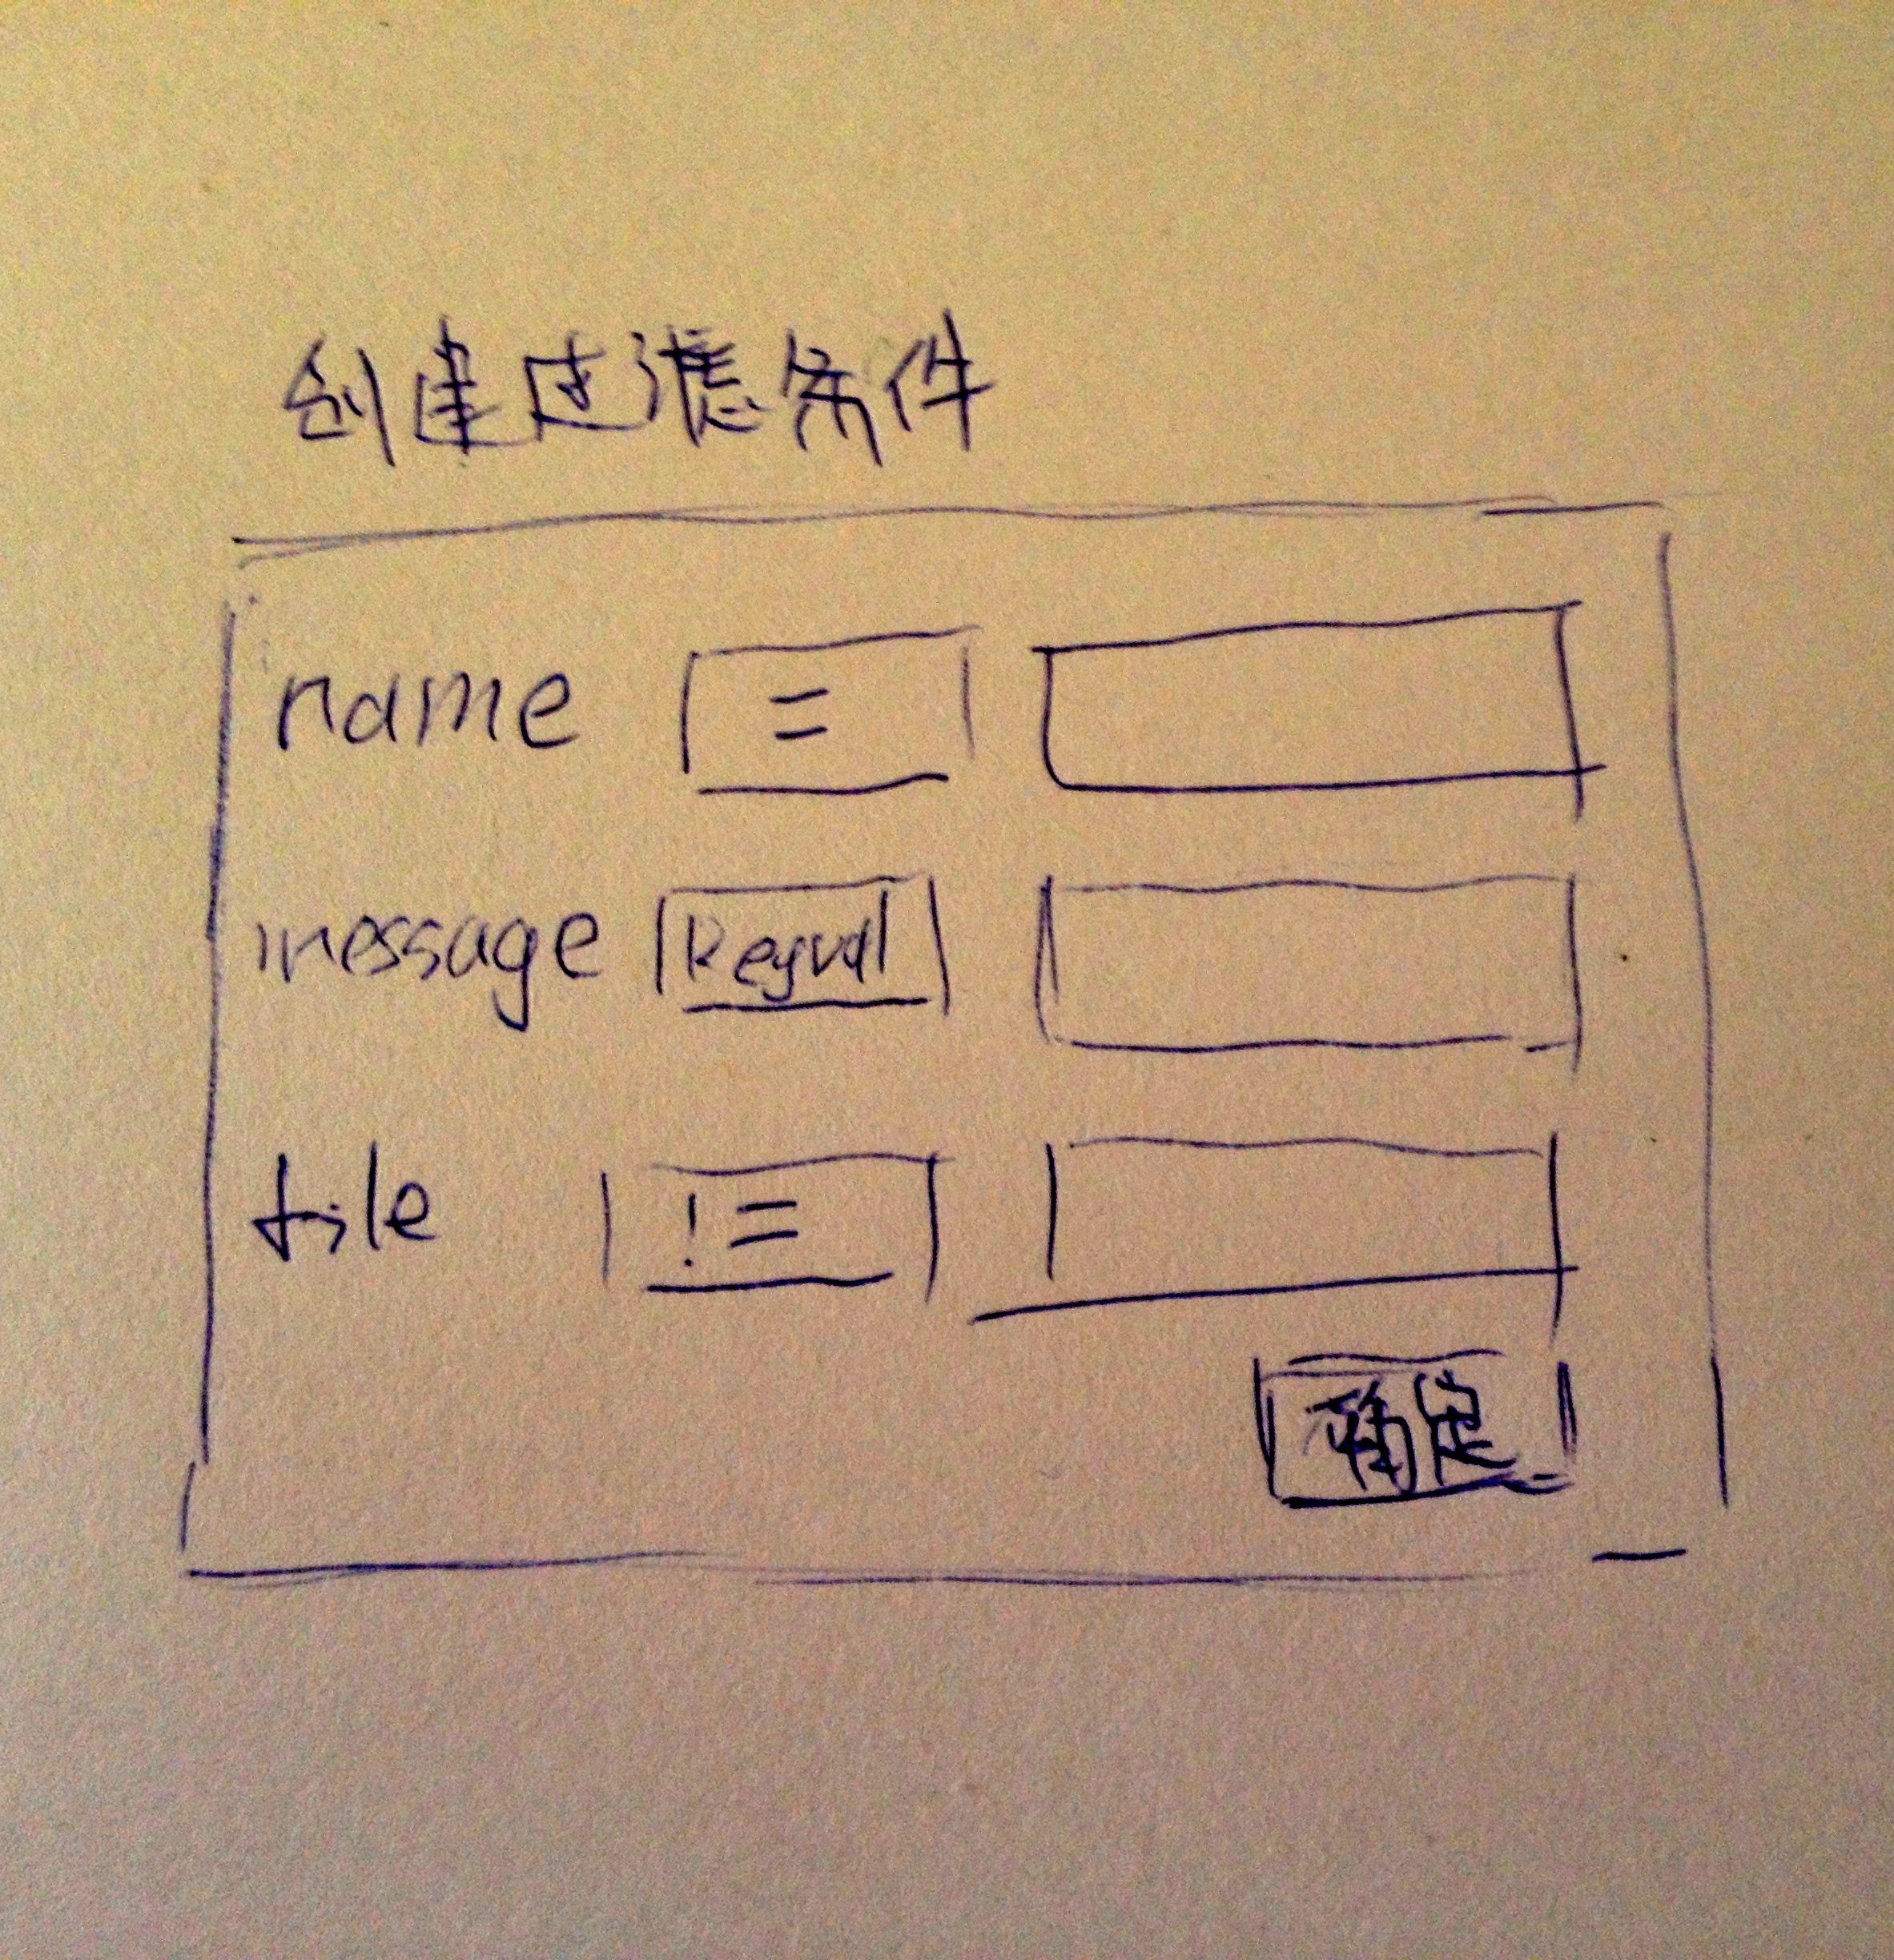 创建过滤条件
name =
message Keyval
file !=
确定